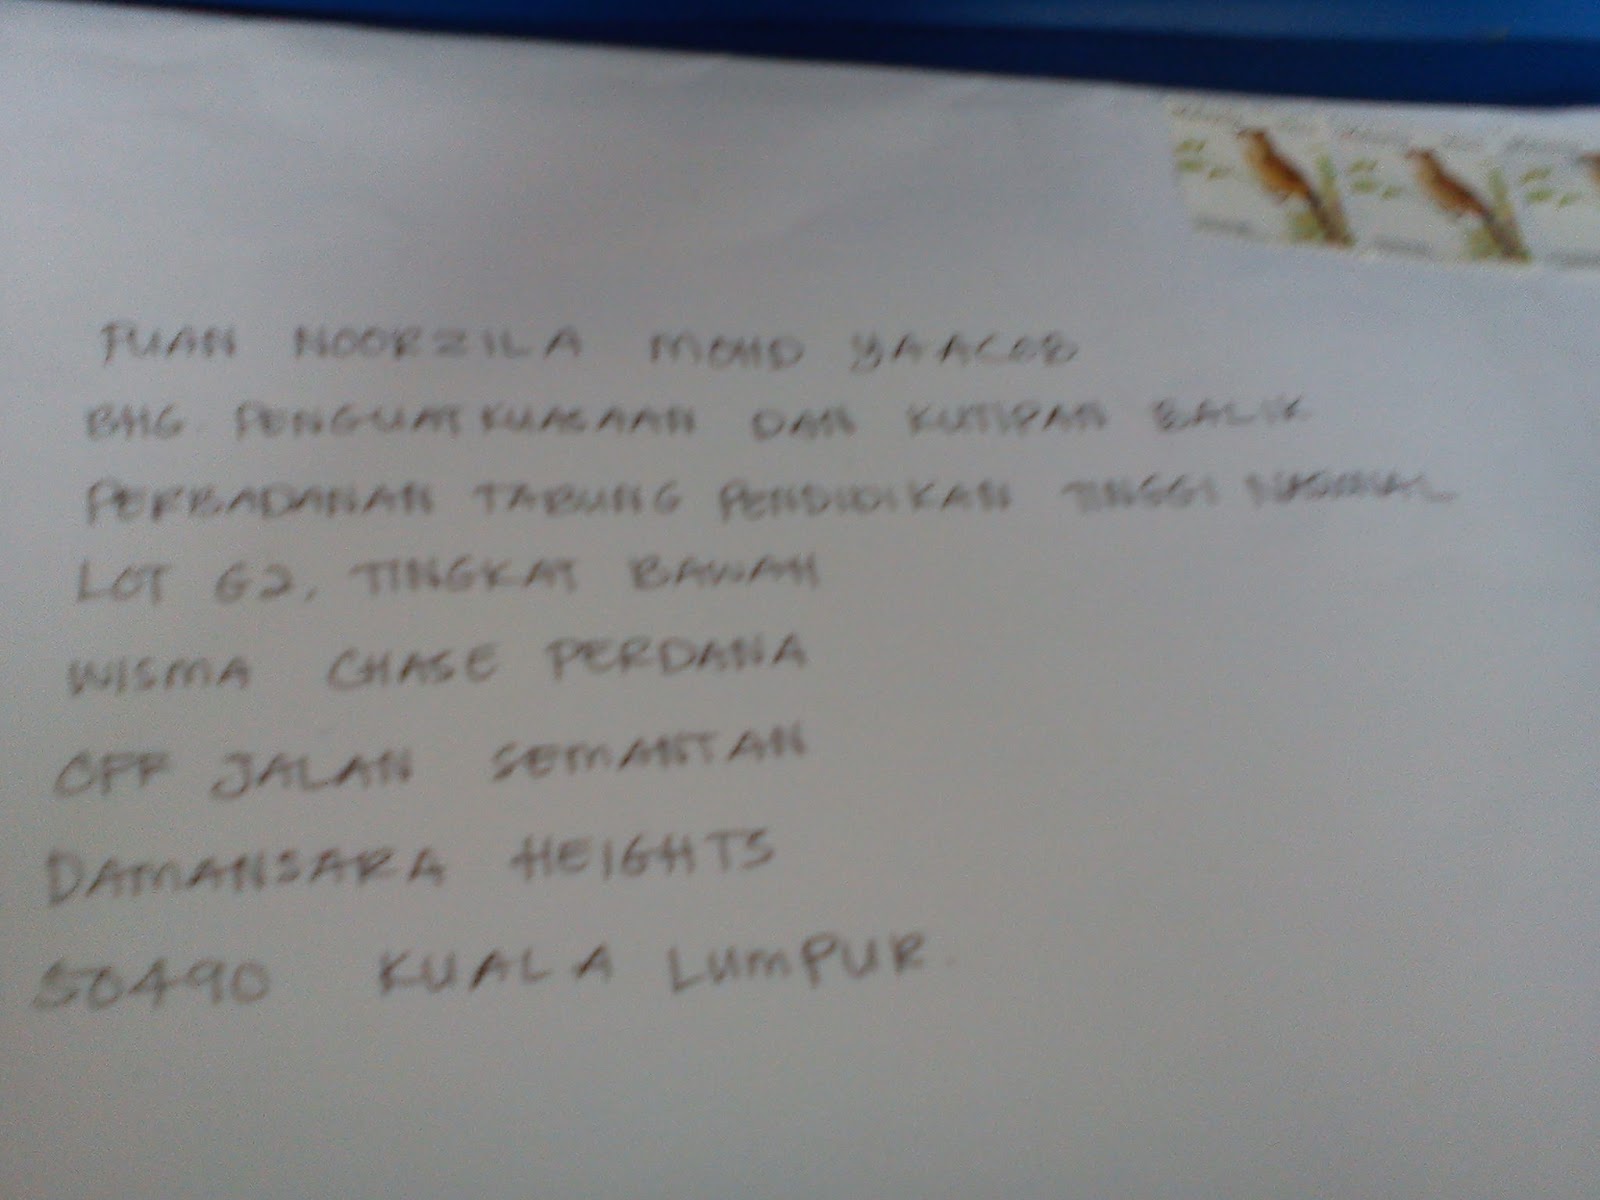 TUAN NOORZILA MOHD YAACOB
BHG. PENGUATKUASAAN DAN KUTIPAN BALIK
PERBADANAN TABUNG PENDIDIKAN TINGGI NASIONAL
LOT G2, TINGKAT BAWAH
WISMA CHASE PERDANA
OFF JALAN SEMANTAN
DAMANSARA HEIGHTS
50490 KUALA LUMPUR.